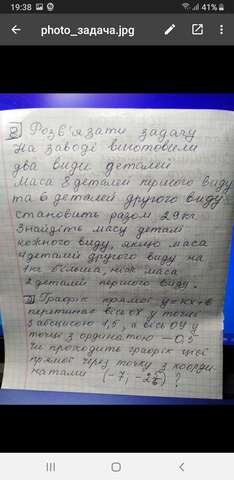 19:38
41%
photo_задача.jpg
8 Розв'язати задачу
На заводі виготовили
два види деталей
Маса 8 деталей першого виду
та 6 деталей другого виду
становить разом 29 кг
Знайдіть масу деталі
кожного виду, якщо маса
4 деталей другого виду на
1 кг більша, ніж маса
2 деталей першого виду.
Графік прямої y=kx+b
перетинає вісь ох у точці
з абсцисою 1,5, а вісь ОУ у
точці з ординатою -0,5
Чи проходить графік цієї
прямої через точку з коорди
натами (-7; -2 5/6) ?